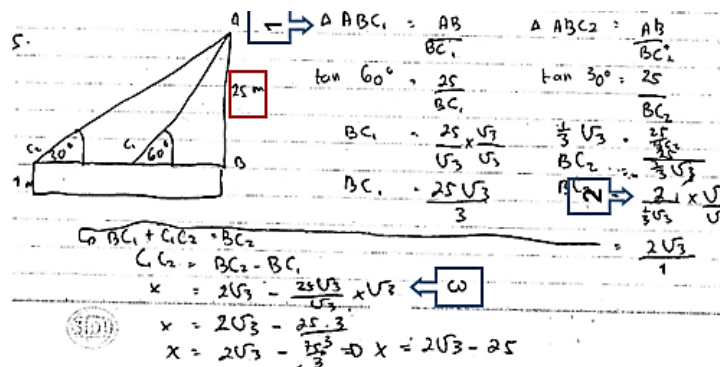 5.
A
25 m
C2
30°
C1
60°
B
1
Δ ABC1 = AB / BC1
tan 60° = 25 / BC1
BC1 = 25 / √3 × √3 / √3
BC1 = 25√3 / 3
Δ ABC2 = AB / BC2
tan 30° = 25 / BC2
1/3 √3 =
BC2 =
2
= 2√3 / 1
BC1 + C1C2 = BC2
C1C2 = BC2 - BC1
x = 2√3 - 25√3 / √3 × √3
3
x = 2√3 - 25.3
x = 2√3 - 75 / 3 => x = 2√3 - 25
SIDU